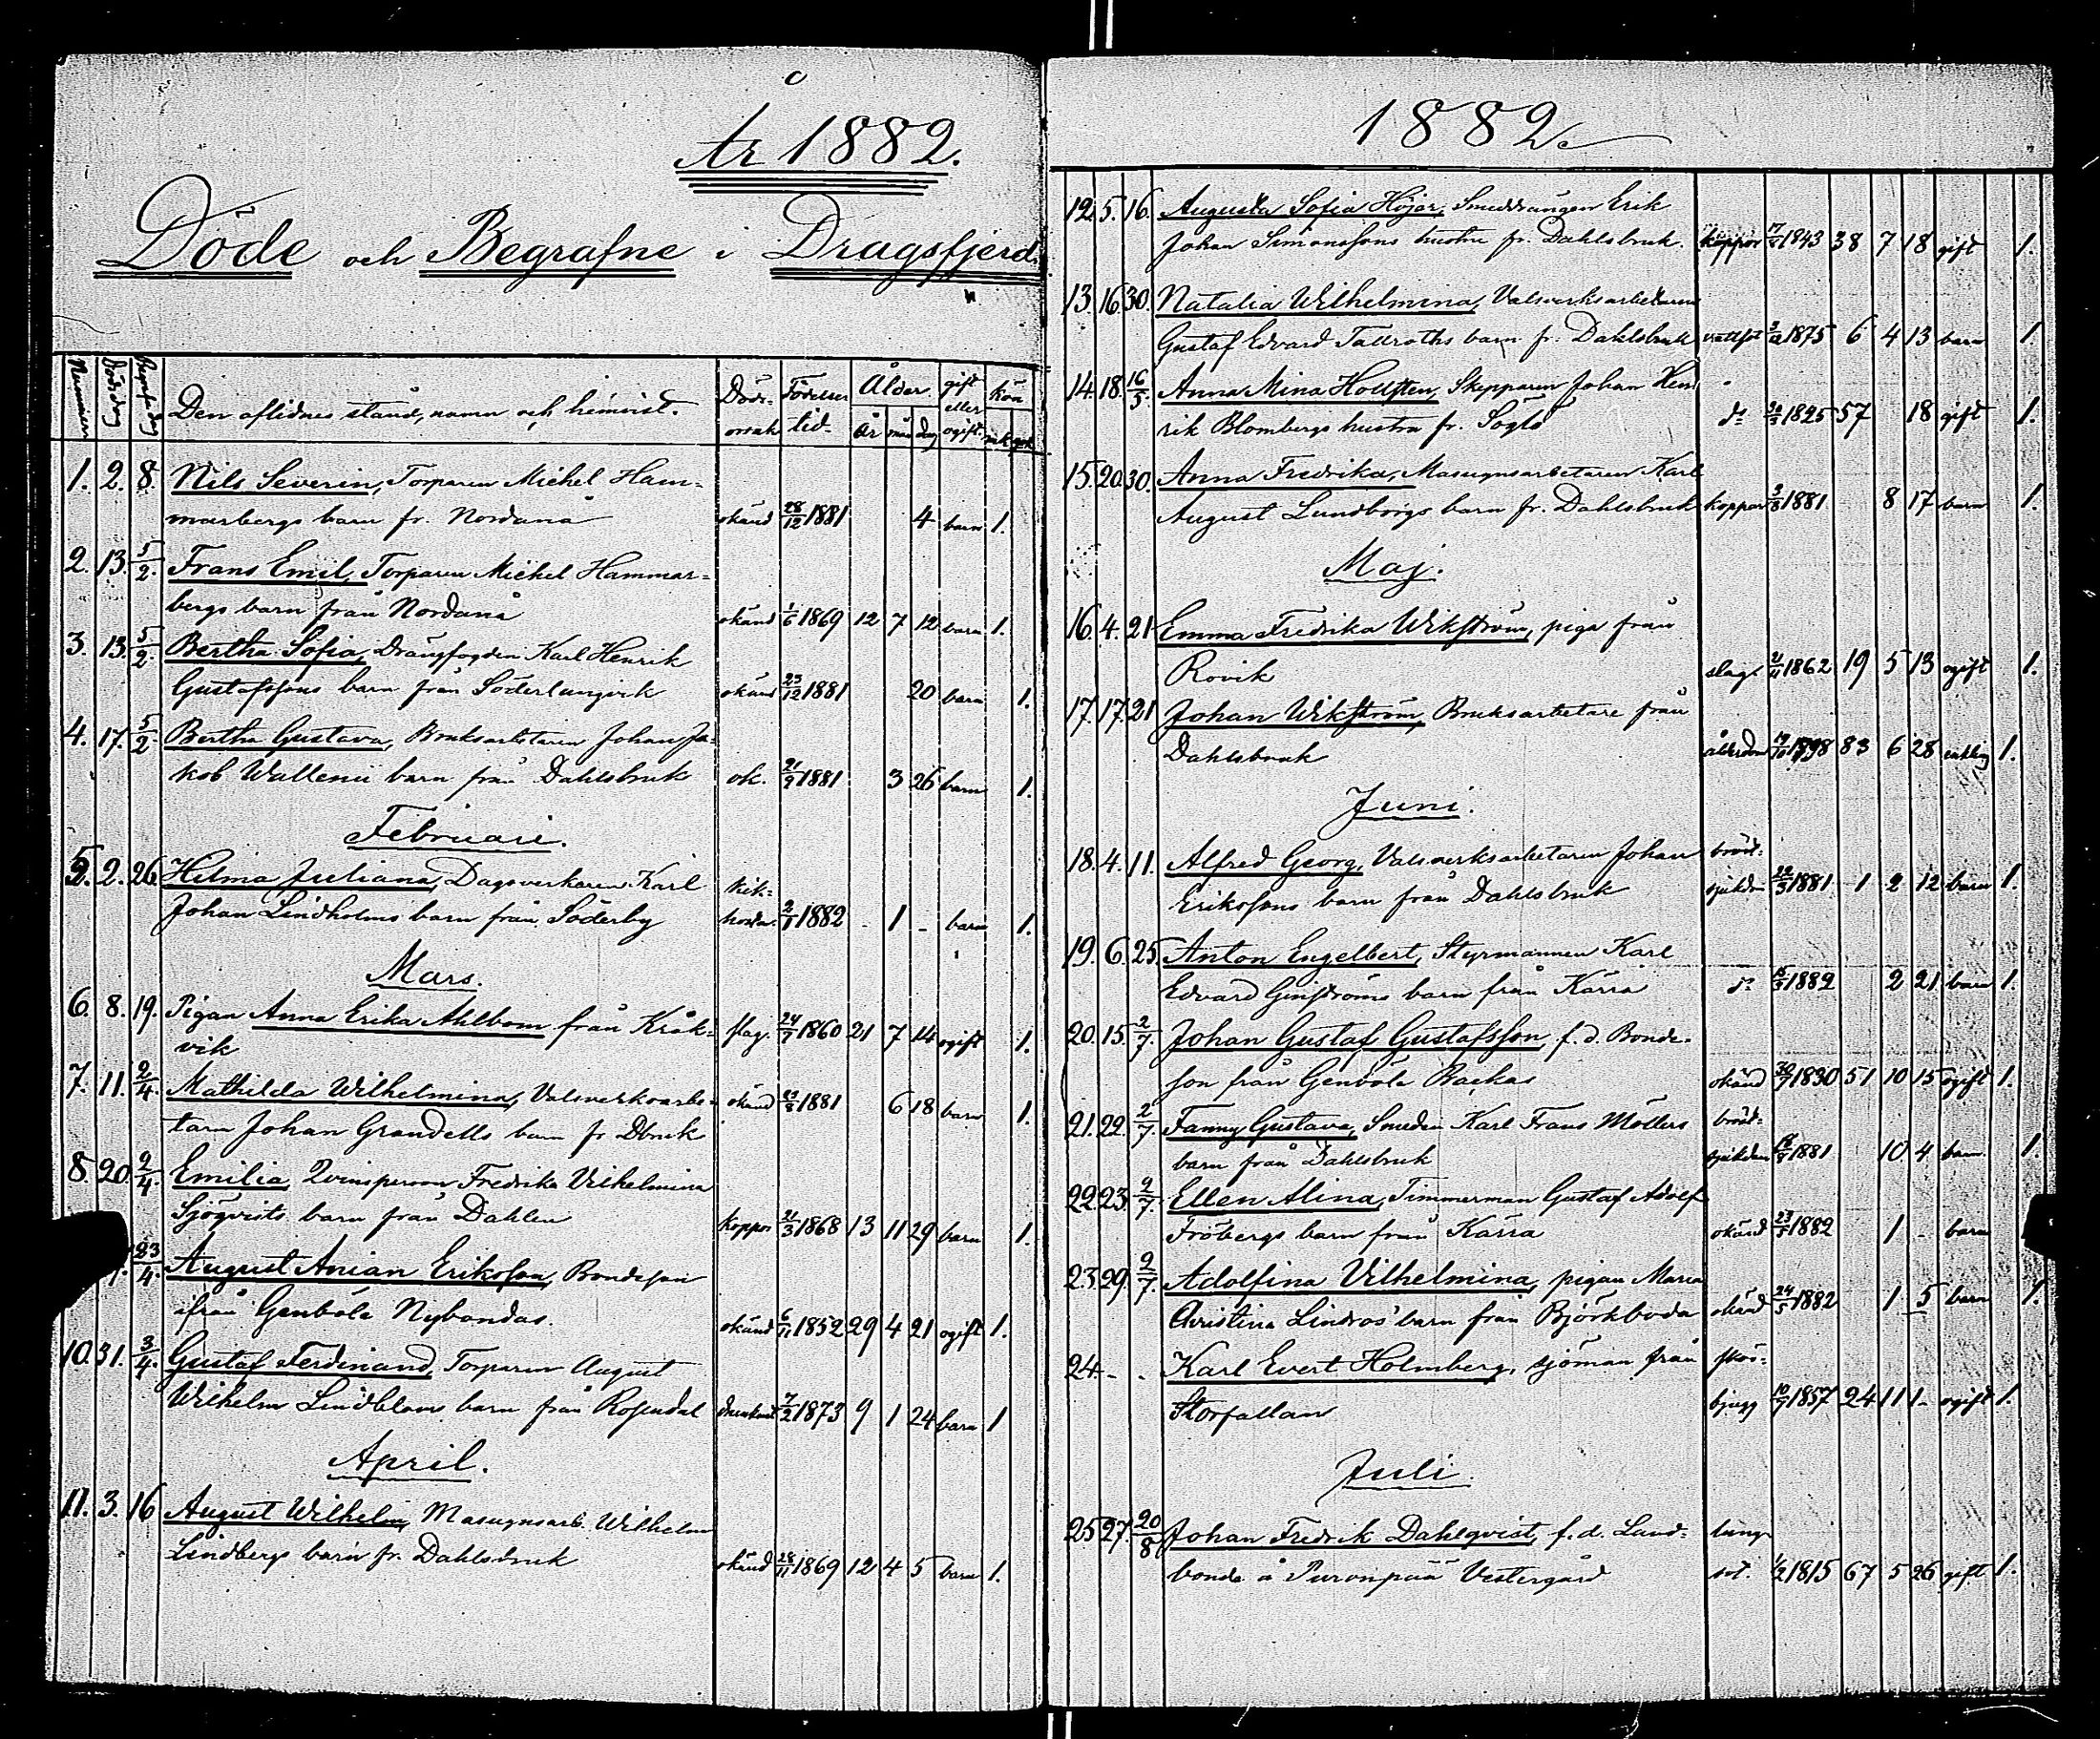 År 1882.
Döde och Begrafne i Dragsfjerd.
Nummern Dödsdag Begrafn. dag Den aflidnes stånd, namn och hemvist. Döds- Födelse Ålder gift kön
orsak tid år mån dag eller ogift mk qvk
1. 2. 8. Nils Severin, Torparen Michel Ham-
marbergs barn fr. Nordanå okänd 28/12 1881 4 barn 1.
2. 13. 5/2. Frans Emil, Torparen Michel Hammar-
bergs barn från Nordanå okänd 1/6 1869 12 7 12 barn 1.
3. 13. 5/2. Bertha Sofia, Drängfogden Karl Henrik
Gustafssons barn från Söderlangvik okänd 23/12 1881 20 barn 1.
4. 17. 5/2. Bertha Gustava, Bruksarbetaren Johan Ja-
kob Wallenii barn från Dahlsbruk ok. 21/9 1881 3 26 barn 1.
Februari.
5. 2. 26. Hilma Juliana, Dagsverkaren Karl kik-
Johan Lindholms barn från Söderby hosta 2/1 1882 - 1 - barn 1.
Mars.
6. 8. 19. Pigan Anna Erika Ahlbom från Kråk- slag. 24/7 1860 21 7 14 ogift 1.
vik
7. 11. 2/4. Mathilda Wilhelmina, Valsverksarbe- okänd 23/8 1881 6 18 barn 1.
tarn Johan Grandells barn fr Dbruk
8. 20. 2/4. Emilia Qvinsperson Fredrika Vilhelmina
Sjöqvists barn från Dahlen koppor 21/3 1868 13 11 29 barn 1.
23/4. August Anian Eriksson, Bondeson
ifrån Genböle Nybondas. okänd 6/11 1852 29 4 21 ogift 1.
10. 31. 3/4. Gustaf Ferdinand, Torparen August
Wilhelm Lindbloms barn från Rosendal drunknat 7/2 1873 9 1 24 barn 1
April.
11. 3. 16 August Wilhelm, Masugnsarb. Wilhelm
Lindbergs barn fr. Dahlsbruk okänd 28/11 1869 12 4 5 barn 1.
1882.
12. 5. 16. Augusta Sofia Höjer, Smeddrängen Erik
Johan Simonssons hustru fr. Dahlsbruk. koppor 17/8 1843 38 7 18 gift 1.
13. 16. 30. Natalia Wilhelmina, Valsverksarbetaren
Gustaf Edvard Tallroths barn fr. Dahlsbruk vattsot 3/12 1875 6 4 13 barn 1.
14. 18. 16/5. Anna Mina Hollsten, Skepparen Johan Hen
rik Blombergs hustru fr. Söglö d:o 1825 57 18 gift 1.
15. 20. 30. Anna Fredrika, Masugnsarbetaren Karl
August Lundborgs barn fr. Dahlsbruk koppor 3/8 1881 8 17 barn 1.
Maj.
16. 4. 21. Emma Fredrika Wikström, piga från
Rovik slag. 21/11 1862 19 5 13 ogift 1.
17. 17. 21 Johan Wikström, Bruksarbetare från
Dahlsbruk ålderdom 19/10 1798 83 6 28 enkling 1.
Juni.
18. 4. 11. Alfred Georg, Valsverksarbetaren Johan bröst-
Erikssons barn från Dahlsbruk sjukdm 22/3 1881 1 2 12 barn 1.
19. 6. 25. Anton Engelbert, Styrmannen Karl
Edvard Ginströms barn från Kärra d:o 1882 2 21 barn 1.
20. 15. 2/7. Johan Gustaf Gustafsson, f.d. Bonde-
son från Genböle Backas okänd 30/7 1830 51 10 15 ogift 1.
21. 22. 2/7. Fanny Gustava, Smeden Karl Frans Möllers bröst-
barn från Dahlsbruk sjukdm 18/8 1881 10 4 barn 1.
22. 23. 2/7. Ellen Alina, Timmerman Gustaf Adolf
Fröbergs barn från Kärra okänd 23/5 1882 1 - barn
23. 29. 2/7. Adolfina Vilhelmina, pigan Maria
Christina Lindros' barn från Björkboda okänd 24/5 1882 1 5 barn 1.
24 - . Karl Evert Holmberg, sjöman från skör-
Storfallan bjugg 10/7 1857 24 11 1 - ogift 1.
Juli.
25 27. 20/8 Johan Fredrik Dahlqvist, f.d. Land- lung-
bonde å Puronpää Vestergård sot. 1/2 1815 67 5 26 gift 1.